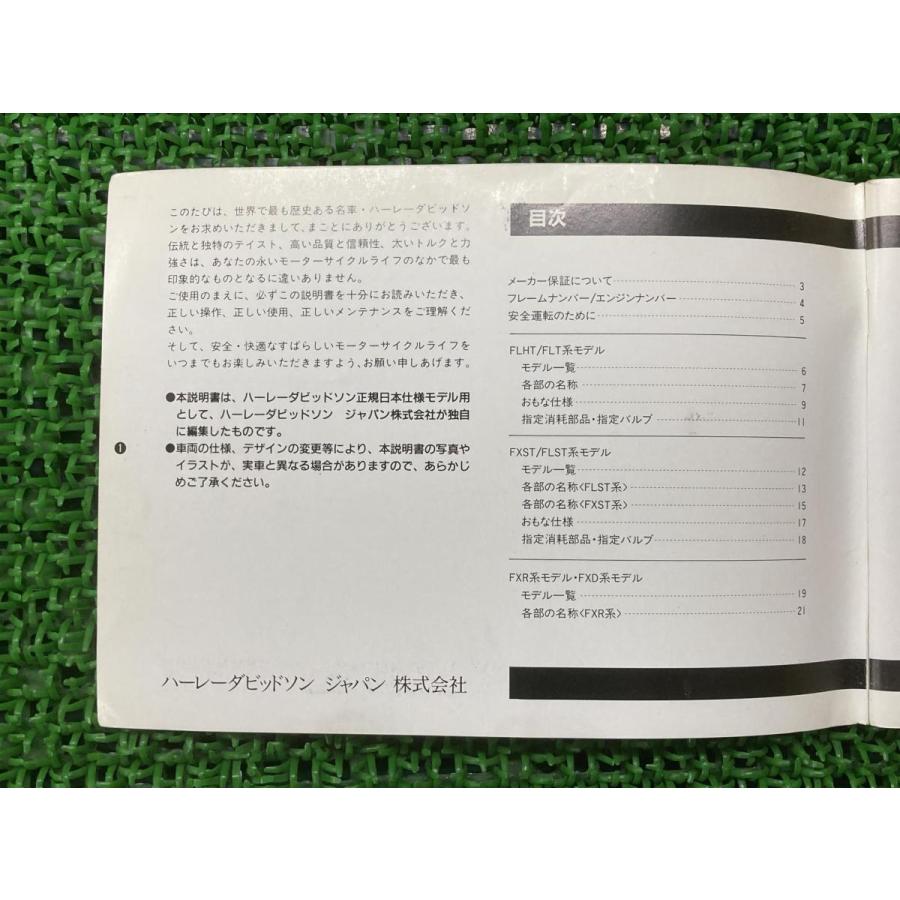 このたびは、世界で最も歴史ある名車・ハーレーダビッドソ
ンをお求めいただきまして、まことにありがとうございます。
伝統と独特のテイスト、高い品質と信頼性、太いトルクと力
強さは、あなたの永いモーターサイクルライフのなかで最も
印象的なものとなるに違いありません。
ご使用のまえに、必ずこの説明書を十分にお読みいただき、
正しい操作、正しい使用、正しいメンテナンスをご理解くださ
い。
そして、安全・快適なすばらしいモーターサイクルライフを
いつまでもお楽しみいただきますよう、お願い申しあげます。
●本説明書は、ハーレーダビッドソン正規日本仕様モデル用
として、ハーレーダビッドソン ジャパン株式会社が独自
に編集したものです。
●車両の仕様、デザインの変更等により、本説明書の写真や
イラストが、実車と異なる場合がありますので、あらかじ
めご了承ください。
1
ハーレーダビッドソン ジャパン 株式会社
目次
メーカー保証について 3
フレームナンバー/エンジンナンバー 4
安全運転のために 5
FLHT/FLT系モデル
モデル一覧 6
各部の名称 7
おもな仕様 9
指定消耗部品・指定バルブ 11
FXST/FLST系モデル
モデル一覧 12
各部の名称〈FLST系〉 13
各部の名称〈FXST系〉 15
おもな仕様 17
指定消耗部品・指定バルブ 18
FXR系モデル・FXD系モデル
モデル一覧 19
各部の名称〈FXR系〉 21